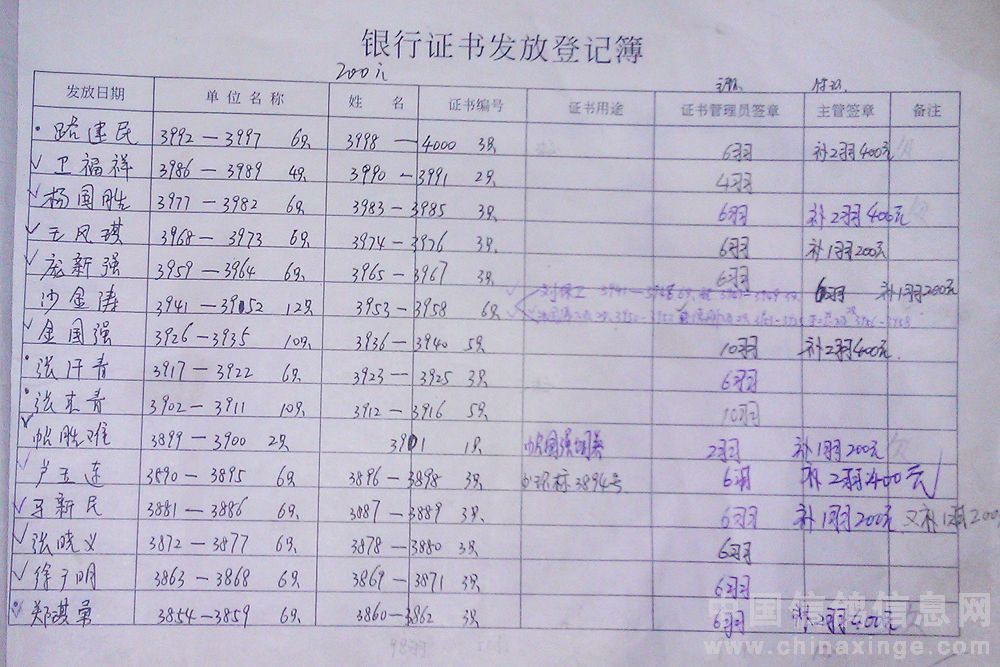 银行证书发放登记簿
200元
发放日期 单位名称 姓名 证书编号 证书用途 证书管理员签章 主管签章 备注
路建民 3992—3997 6只 3998—4000 3只 6羽 补2羽400元
卫福祥 3986—3989 4只 3990—3991 2只 4羽
杨国胜 3977—3982 6只 3983—3985 3只 6羽 补2羽400元
王风琪 3968—3973 6只 3974—3976 3只 6羽 补1羽200元
庞新强 3959—3964 6只 3965—3967 3只 6羽
沙金涛 3941—3952 12只 3953—3958 6只 6羽 补1羽200元
金国强 3926—3935 10只 3936—3940 5只 10羽 补2羽400元
张仟青 3917—3922 6只 3923—3925 3只 6羽
张东青 3902—3911 10只 3912—3916 5只 10羽
胜难 3899—3900 2只 3901 1只 2羽 补1羽200元
芦玉连 3890—3895 6只 3896—3898 3只 环标3894号 6羽 补2羽400元
马新民 3881—3886 6只 3887—3889 3只 6羽 补1羽200元 又补1羽200
张晓义 3872—3877 6只 3878—3880 3只 6羽
徐于明 3863—3868 6只 3869—3871 3只 6羽
郑琪勇 3854—3859 6只 3860—3862 3只 6羽 补2羽400元
98羽
中国信鸽信息网
www.chinaxinge.com